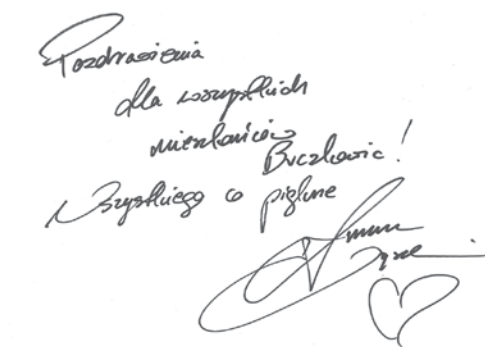 Pozdrowienia
dla wszystkich
mieszkańców
Buczkowic!
Wszystkiego co piękne